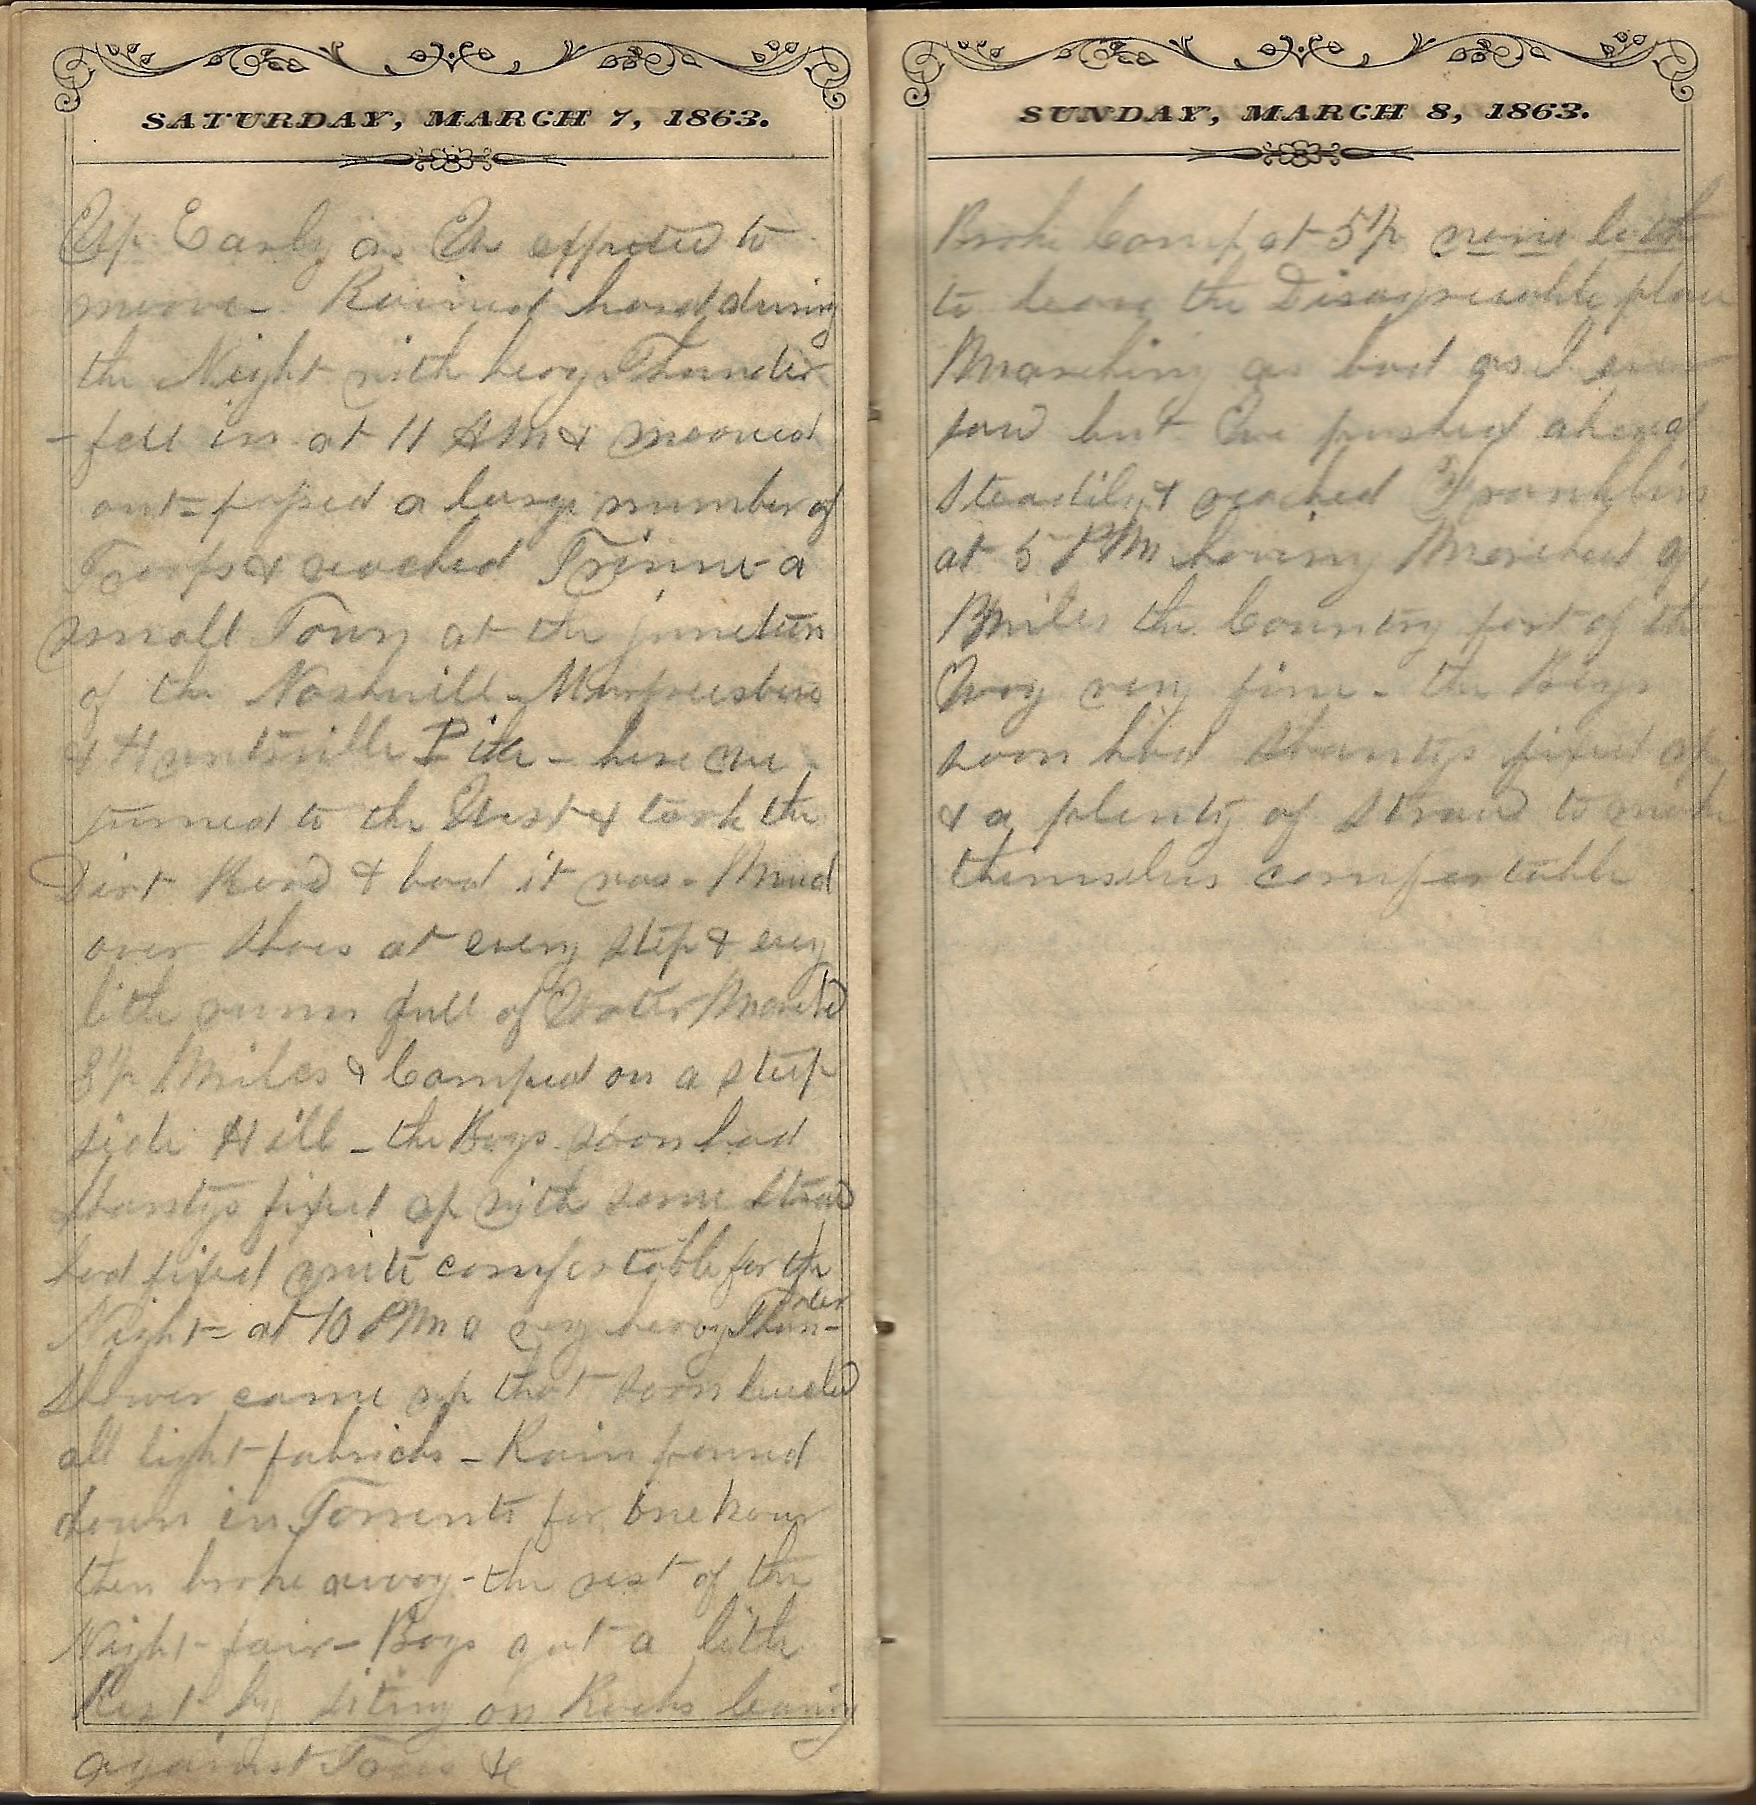 SATURDAY, MARCH 7, 1863.
Up Early as We expected to
moove - Rained hard during
the Night with heavy Thunder
- fell in at 11 AM & mooved
out = passed a large number of
Troops & reached Triune a
small Town at the junction
of the Nashville - Murfreesboro
& Huntsville Pike - here we
turned to the West & took the
Dirt Road & bad it was - Mud
over Shoes at every step & evry
little runn full of Water Marched
8½ Miles & Camped on a steep
side Hill - the Boys soon had
Shantys fixed up with some Straw
had fixed quite comfortable for the
Night = at 10 PM a very heavy Thunder
Shower came up that soon leveled
all light fabricks - Rain poured
down in Torrents for one hour
then broke away - the rest of the
Night fair - Boys got a little
Rest by siting on Rocks leaning
against Trees &c
SUNDAY, MARCH 8, 1863.
Broke Camp at 5½ none loth
to leave the Disagreeable place
Marching as bad as I ever
saw but We pushed ahead
steadily & reached Franklin
at 5 PM having Marched
Miles the Country part of the
Way very fine - the Boys
soon had Shantys fixed up
& a plenty of Straw to make
themselves comfortable